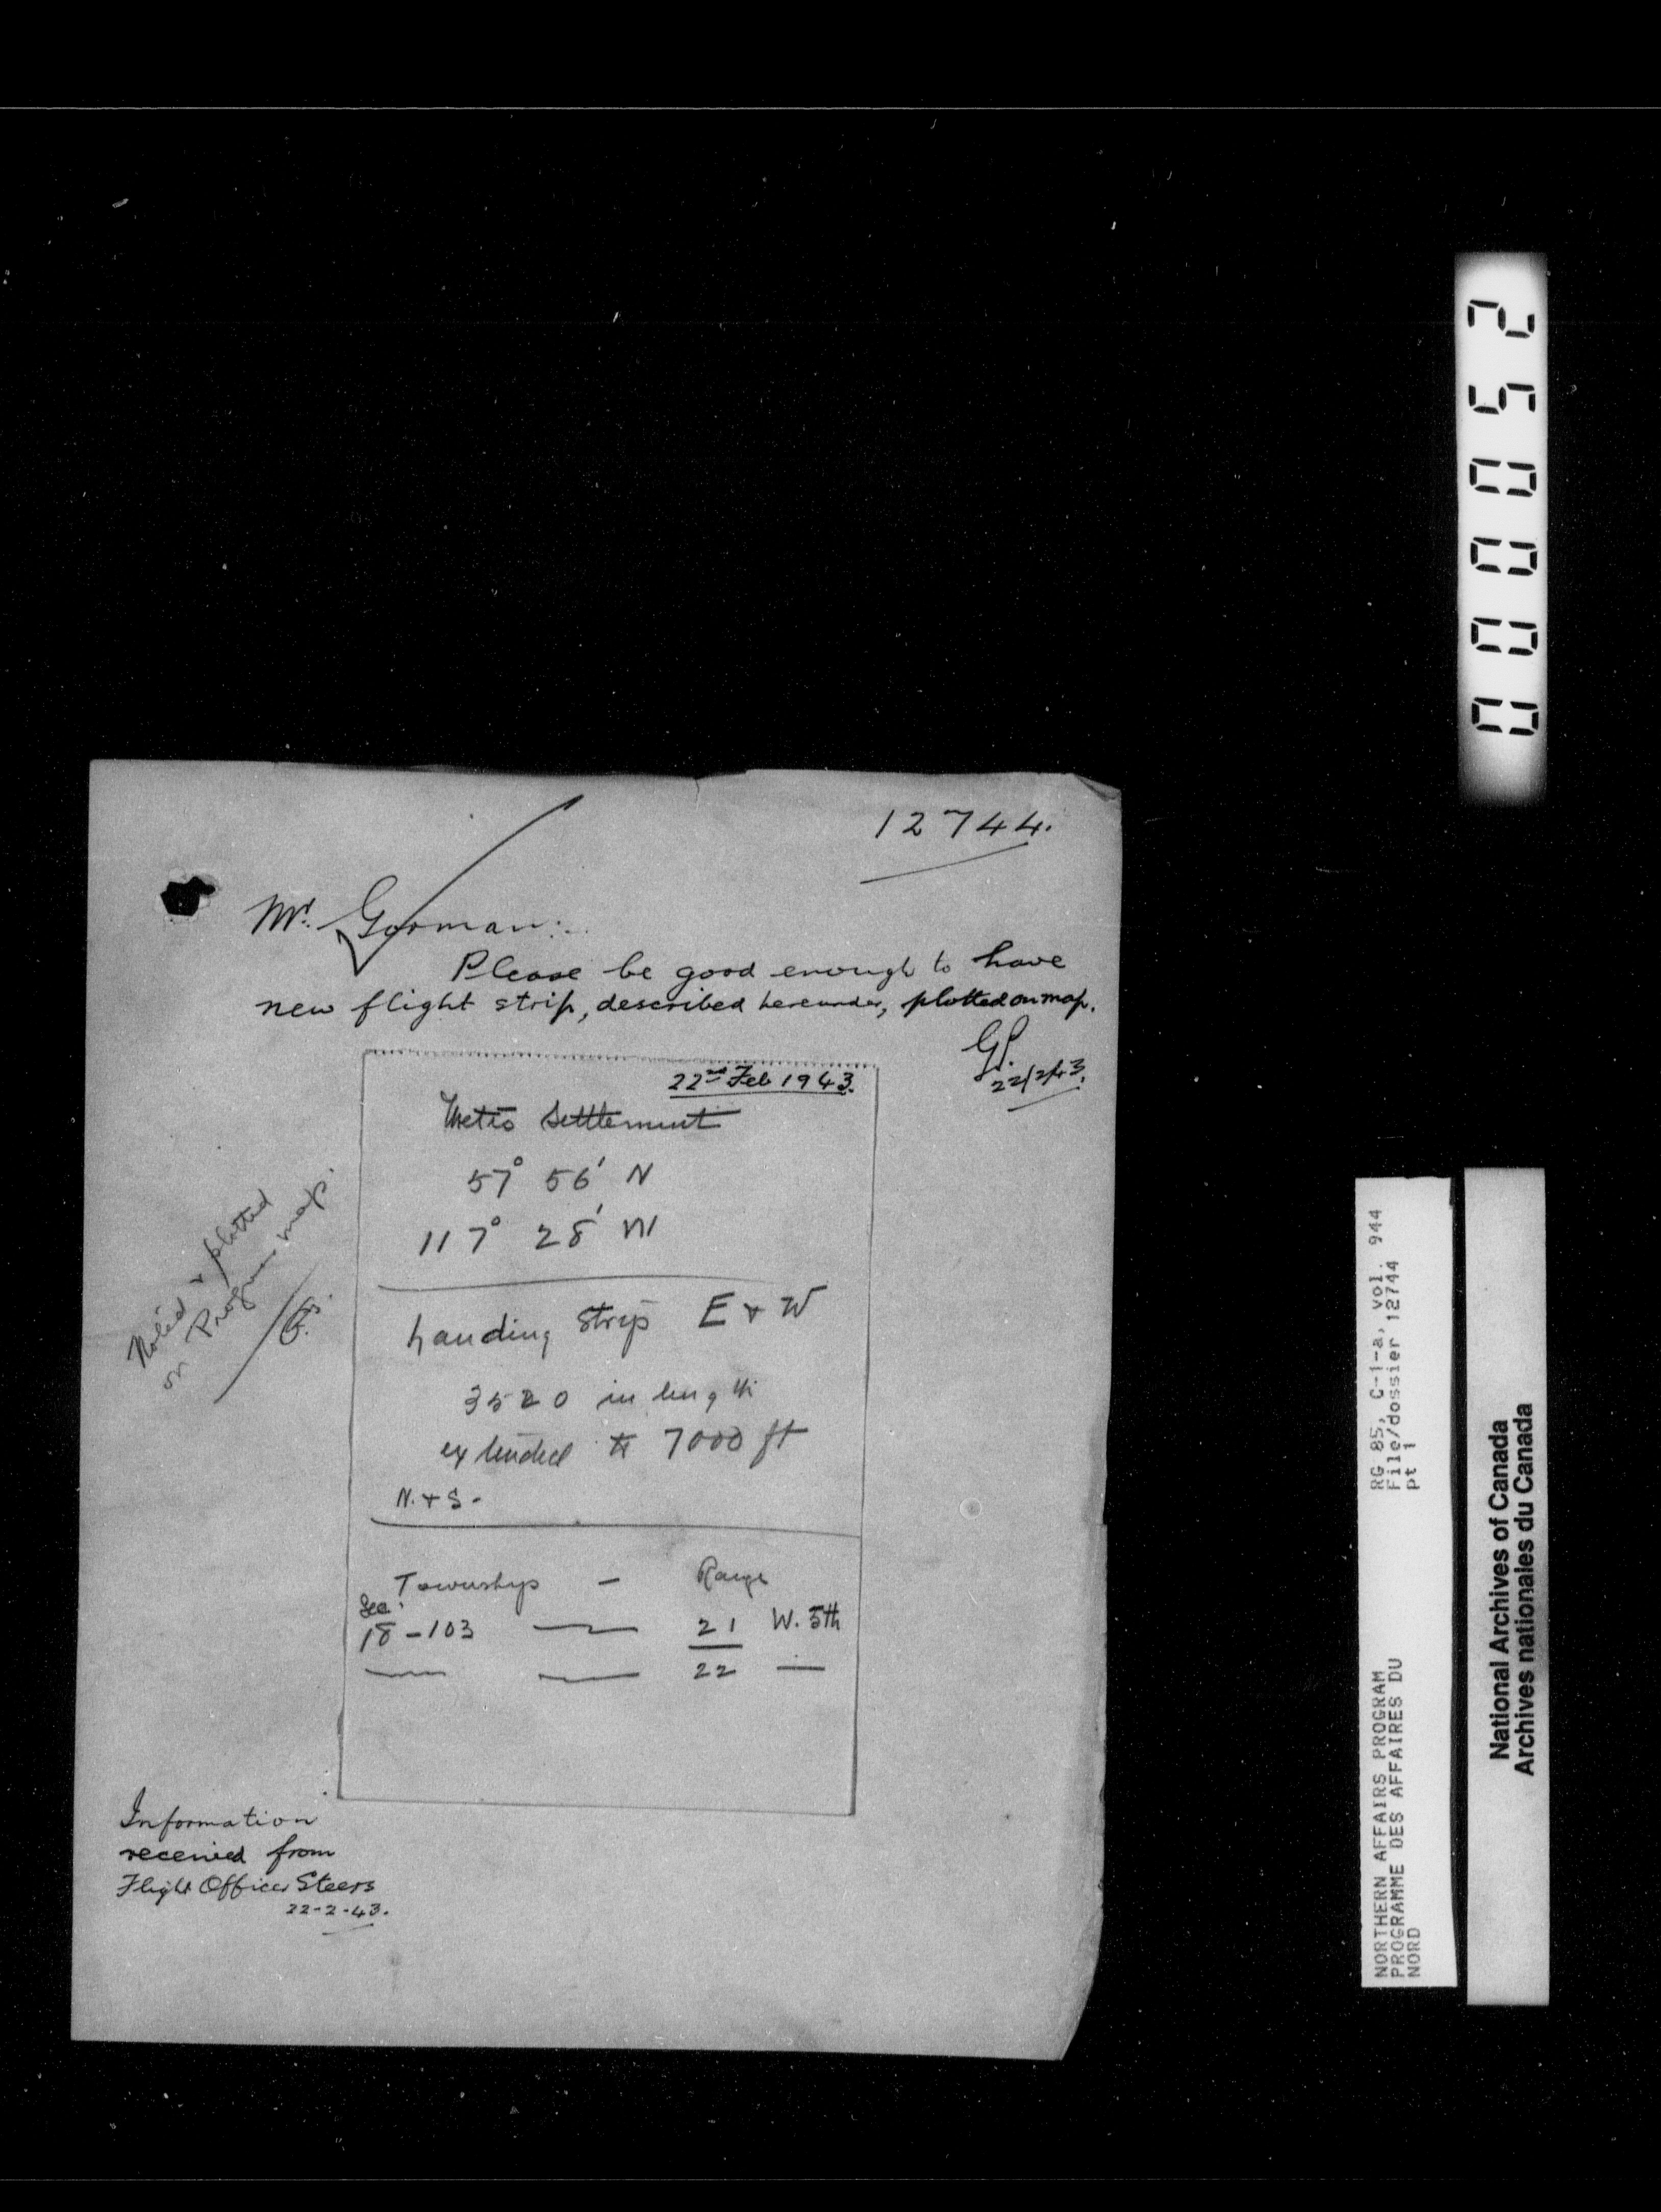 12744.
Mr. Gorman:
Please be good enough to have
new flight strip, described hereunder, plotted on map.
GP.
22/2/43.
22nd Feb 1943.
Metis Settlement
57° 56' N
117° 28' W
Landing Strip E + W
3520 in length
extended to 7000 ft
N. + S -
Townships - Range
Sec.
18 - 103 — 21 W. 5th
— — 22 —
Noted & plotted
on Progress map.
Information
received from
Flight Officer Steers
22-2-43.
00005 2
RG 85, C-1-a, vol. 944
File/dossier 12744
pt 1
NORTHERN AFFAIRS PROGRAM
PROGRAMME DES AFFAIRES DU
NORD
National Archives of Canada
Archives nationales du Canada